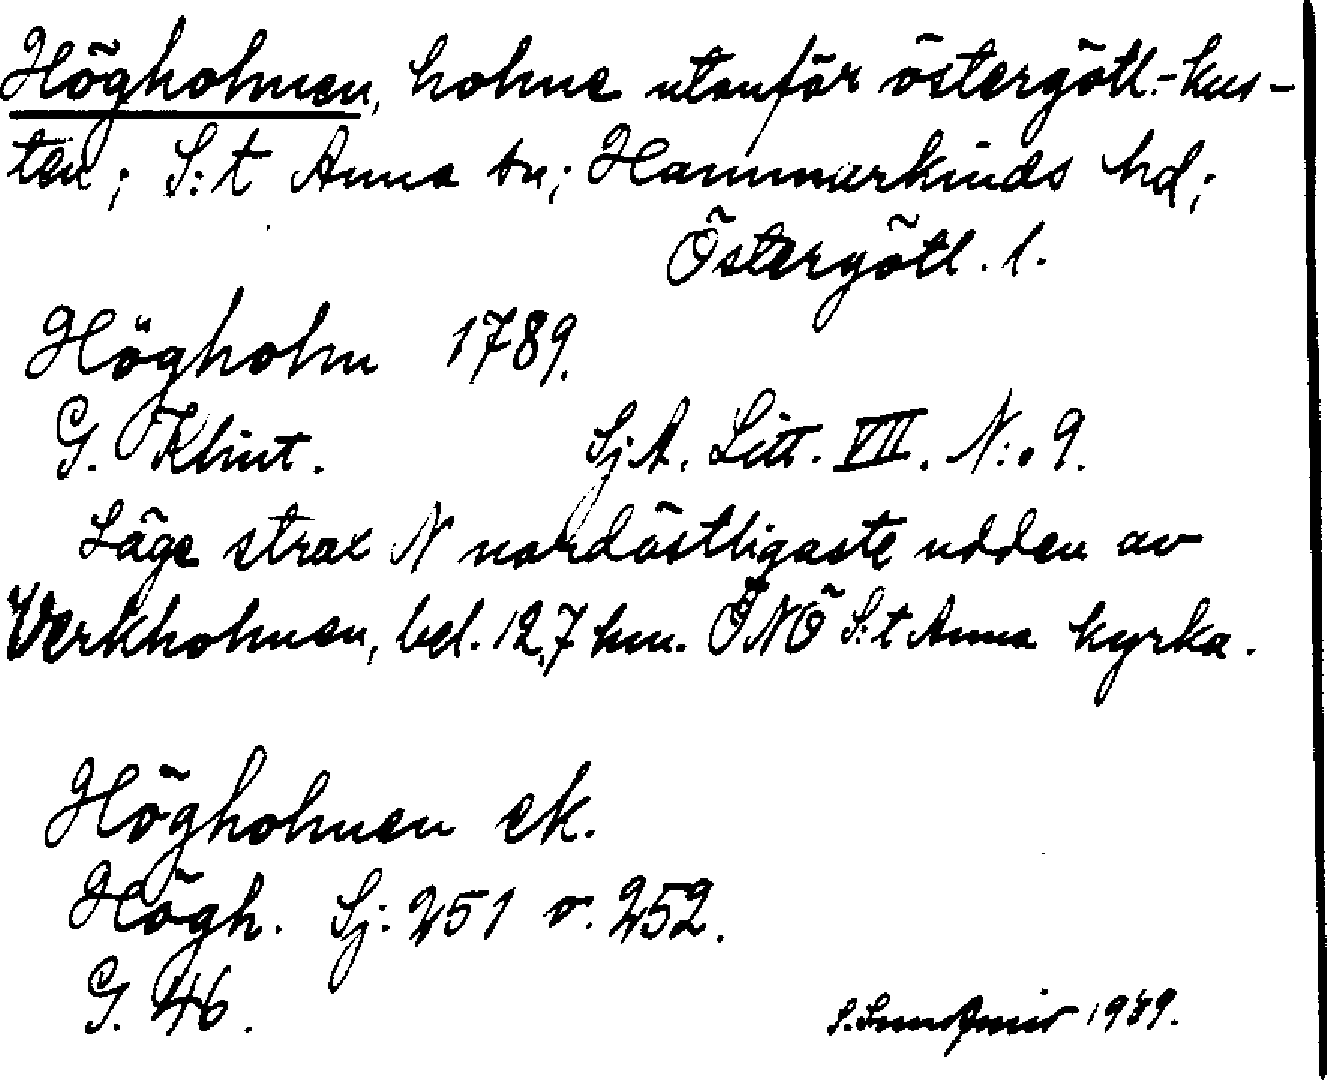 Högholmen, holme utanför östergötl.-kus-
ten; S:t Anna sn; Hammarkinds hd;
Östergötl. l.
Högholm 1789.
G. Klint. Sj.A. Litt. VII. N:o 9.
Läge strax N nordöstligaste udden av
Verkholmen, bel. 12,7 km. ÖNÖ S:t Anna kyrka.
Högholmen ek.
Högh. Sj: 251 o. 252.
G. 46.
S. 1949.